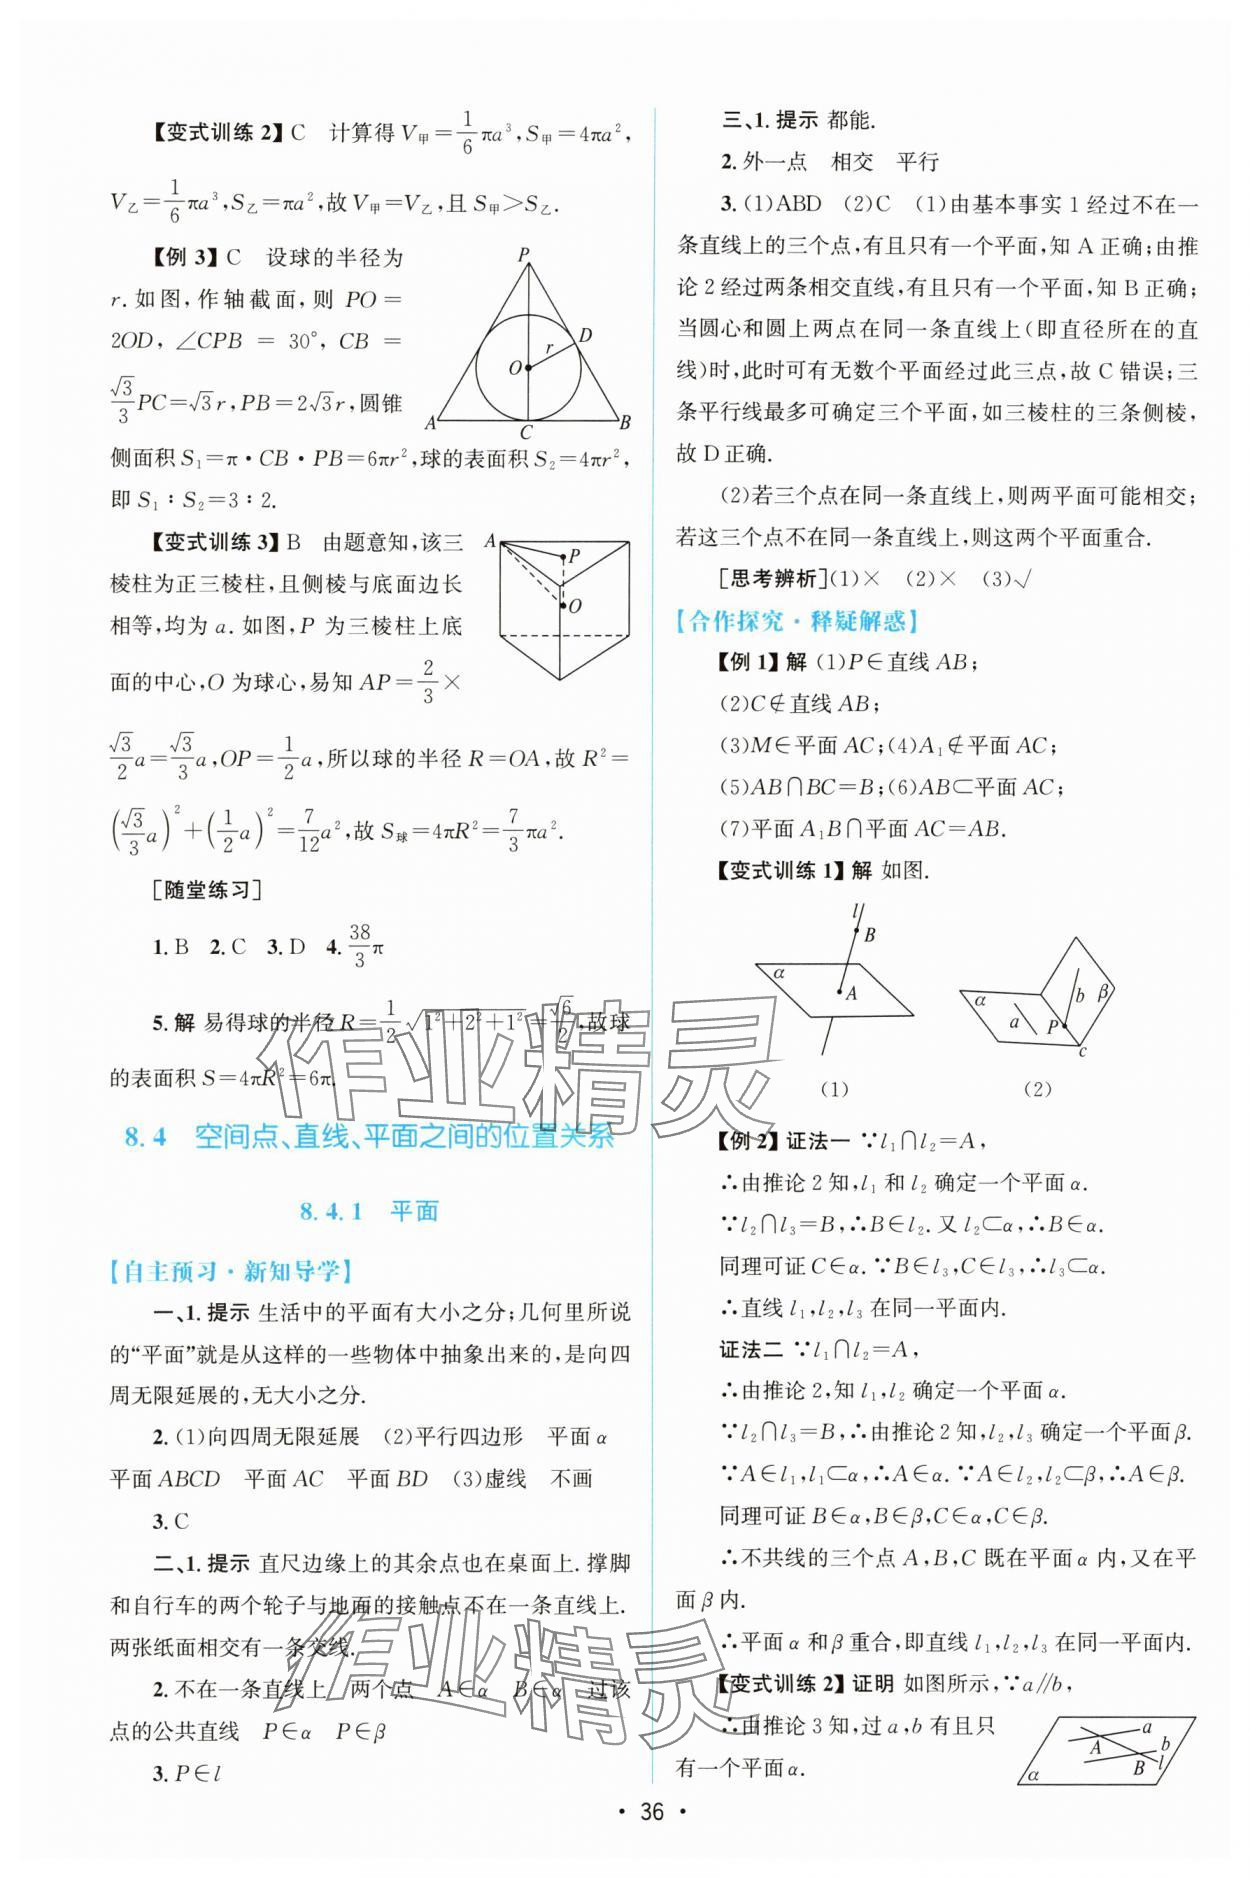 【变式训练2】C　计算得 V甲=1/6 πa³,S甲=4πa²,
V乙=1/6 πa³,S乙=πa²,故 V甲=V乙,且 S甲>S乙.
【例 3】C　设球的半径为
r.如图,作轴截面,则 PO=
2OD,∠CPB = 30°,CB =
√3/3 PC=√3r,PB=2√3r,圆锥
侧面积 S₁=π·CB·PB=6πr²,球的表面积 S₂=4πr²,
即 S₁∶S₂=3∶2.
P
D
r
O
A
C
B
【变式训练3】B　由题意知,该三
棱柱为正三棱柱,且侧棱与底面边长
相等,均为 a.如图,P 为三棱柱上底
面的中心,O 为球心,易知 AP=2/3×
√3/2 a=√3/3 a,OP=1/2 a,所以球的半径 R=OA,故 R²=
(√3/3 a)²+(1/2 a)²=7/12 a²,故 S球=4πR²=7/3 πa².
A
P
O
[随堂练习]
1.B　2.C　3.D　4.38/3 π
5.解 易得球的半径 R=1/2 √(1²+2²+1²)=√6/2,故球
的表面积 S=4πR²=6π.
8.4　空间点、直线、平面之间的位置关系
8.4.1　平面
【自主预习·新知导学】
一、1.提示 生活中的平面有大小之分;几何里所说
的“平面”就是从这样的一些物体中抽象出来的,是向四
周无限延展的,无大小之分.
2.(1)向四周无限延展　(2)平行四边形　平面 α
平面 ABCD　平面 AC　平面 BD　(3)虚线　不画
3.C
二、1.提示 直尺边缘上的其余点也在桌面上.撑脚
和自行车的两个轮子与地面的接触点不在一条直线上.
两张纸面相交有一条交线.
2.不在一条直线上　两个点　A∈α　B∈α　过该
点的公共直线　P∈α　P∈β
3.P∈l
三、1.提示 都能.
2.外一点　相交　平行
3.(1)ABD　(2)C　(1)由基本事实 1 经过不在一
条直线上的三个点,有且只有一个平面,知 A 正确;由推
论 2 经过两条相交直线,有且只有一个平面,知 B 正确;
当圆心和圆上两点在同一条直线上(即直径所在的直
线)时,此时可有无数个平面经过此三点,故 C 错误;三
条平行线最多可确定三个平面,如三棱柱的三条侧棱,
故 D 正确.
(2)若三个点在同一条直线上,则两平面可能相交;
若这三个点不在同一条直线上,则这两个平面重合.
[思考辨析](1)×　(2)×　(3)√
【合作探究·释疑解惑】
【例 1】解 (1)P∈直线 AB;
(2)C∉直线 AB;
(3)M∈平面 AC;(4)A₁∉平面 AC;
(5)AB∩BC=B;(6)AB⊂平面 AC;
(7)平面 A₁B∩平面 AC=AB.
【变式训练1】解 如图.
l
B
α
A
(1)
α
a
P
b
β
c
(2)
【例 2】证法一 ∵l₁∩l₂=A,
∴由推论 2 知,l₁ 和 l₂ 确定一个平面 α.
∵l₂∩l₃=B,∴B∈l₂.又 l₂⊂α,∴B∈α.
同理可证 C∈α.∵B∈l₃,C∈l₃,∴l₃⊂α.
∴直线 l₁,l₂,l₃ 在同一平面内.
证法二 ∵l₁∩l₂=A,
∴由推论 2,知 l₁,l₂ 确定一个平面 α.
∵l₂∩l₃=B,∴由推论 2 知,l₂,l₃ 确定一个平面 β.
∵A∈l₁,l₁⊂α,∴A∈α.∵A∈l₂,l₂⊂β,∴A∈β.
同理可证 B∈α,B∈β,C∈α,C∈β.
∴不共线的三个点 A,B,C 既在平面 α 内,又在平
面 β 内.
∴平面 α 和 β 重合,即直线 l₁,l₂,l₃ 在同一平面内.
【变式训练 2】证明 如图所示,∵a∥b,
∴由推论 3 知,过 a,b 有且只
有一个平面 α.
a
b
l
A
B
α
·36·
作业精灵
作业精灵